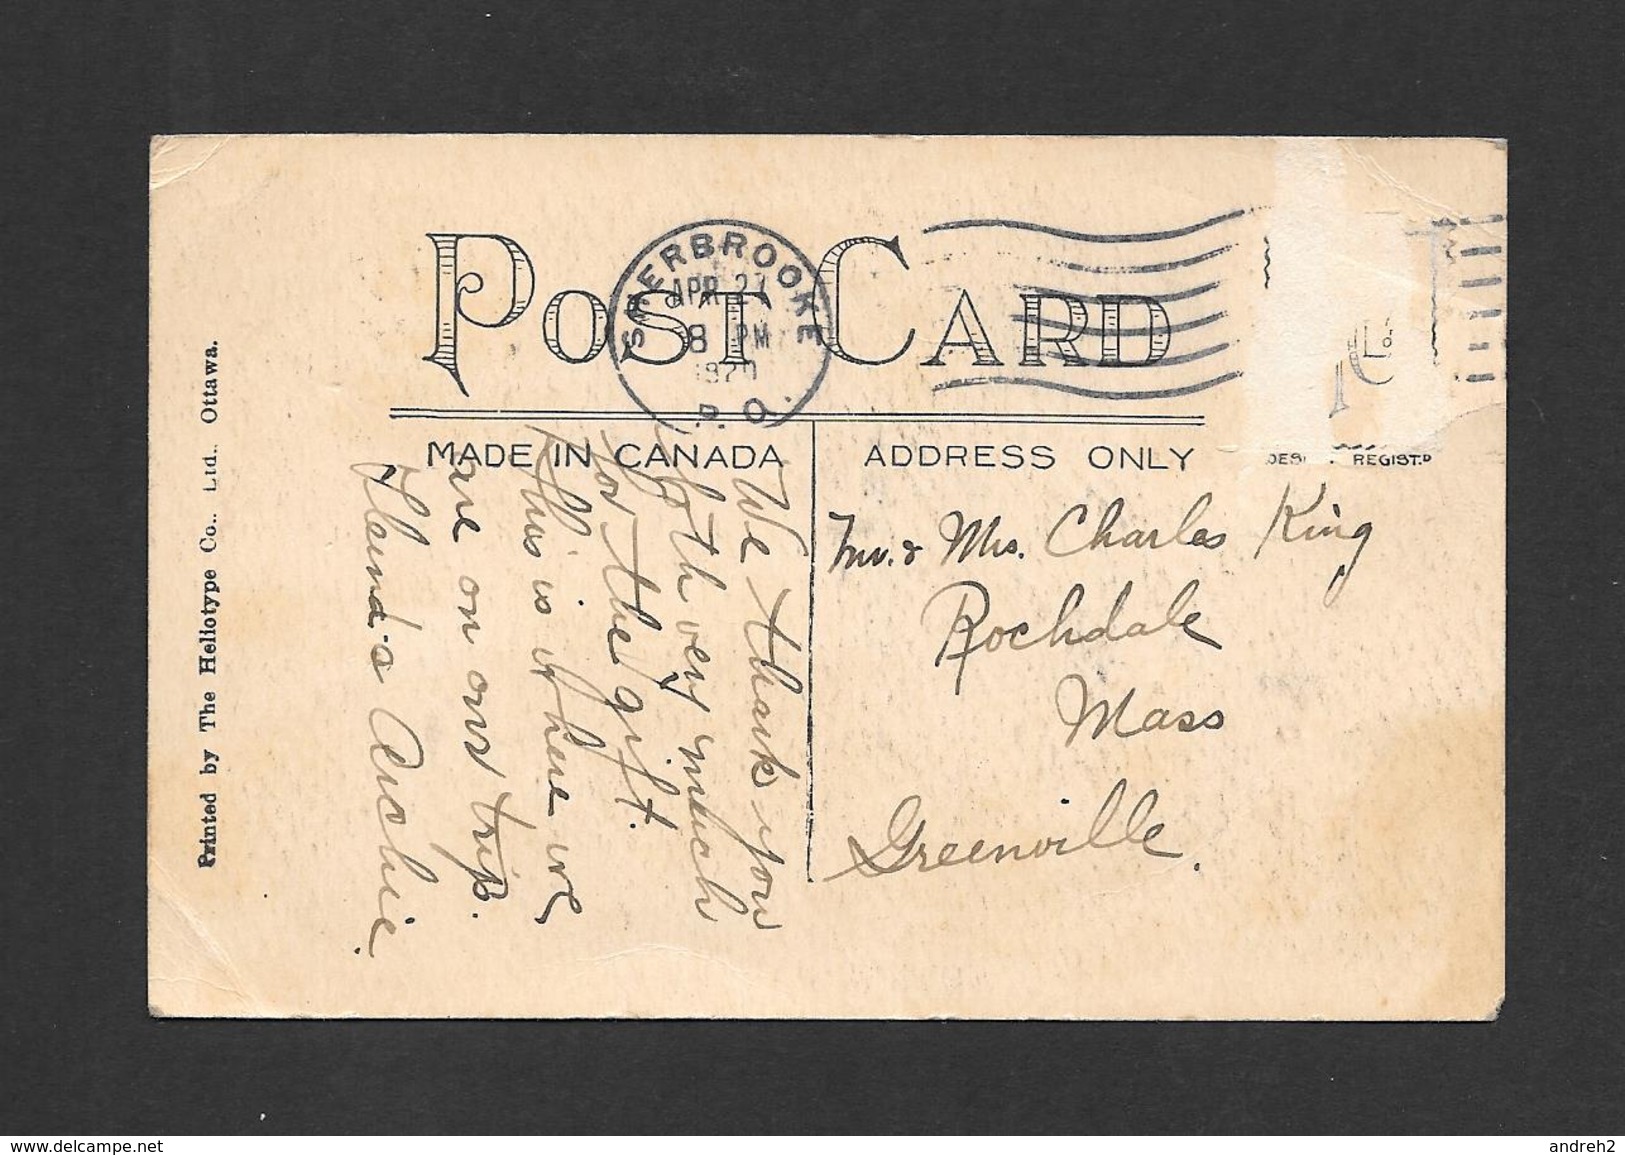 POST CARD
SHERBROOKE
APR 27
8 PM
1920
P. Q.
MADE IN CANADA
ADDRESS ONLY
REGIST'D
Mr. & Mrs. Charles King
Rochdale
Mass
Greenville.
We thank you
both very much
for the gift.
This is where we
are on our trip.
Archie.
Printed by The Heliotype Co., Ltd., Ottawa.
www.delcampe.net
andreh2